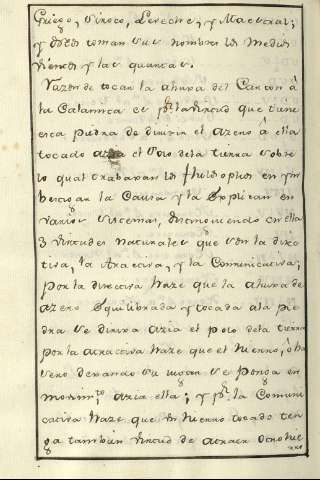 Griego, Siroco, Leveche, y Maestral;
y destos toman sus nombres los medios
vientos y las quartas.
Razon de tocar la ahuja del Carton â
la Calamita es pr. la virtud que tiene
esta piedra de dirixir el azero â ella
tocado azia el Polo dela tierra sobre
lo qual trabaxan los philosophos en ym
bestigar la Causa y la Explican en
varios sistemas, distinguiendo en ella
3 virtudes naturales que son la direc
tiva, la Atractiva, y la Comunicativa;
por la directiva haze que la ahuja de
azero Equilibrada y tocada ala pie
dra se dirixa azia el polo dela tierra
por la atractiva haze que el hierro, ô ha
zero dexando su lugar se ponga en
movimto. azia ella; y pr. la Comuni
cativa haze que un hierro tocado ten
ga tambien virtud de atraer otro hie
rro